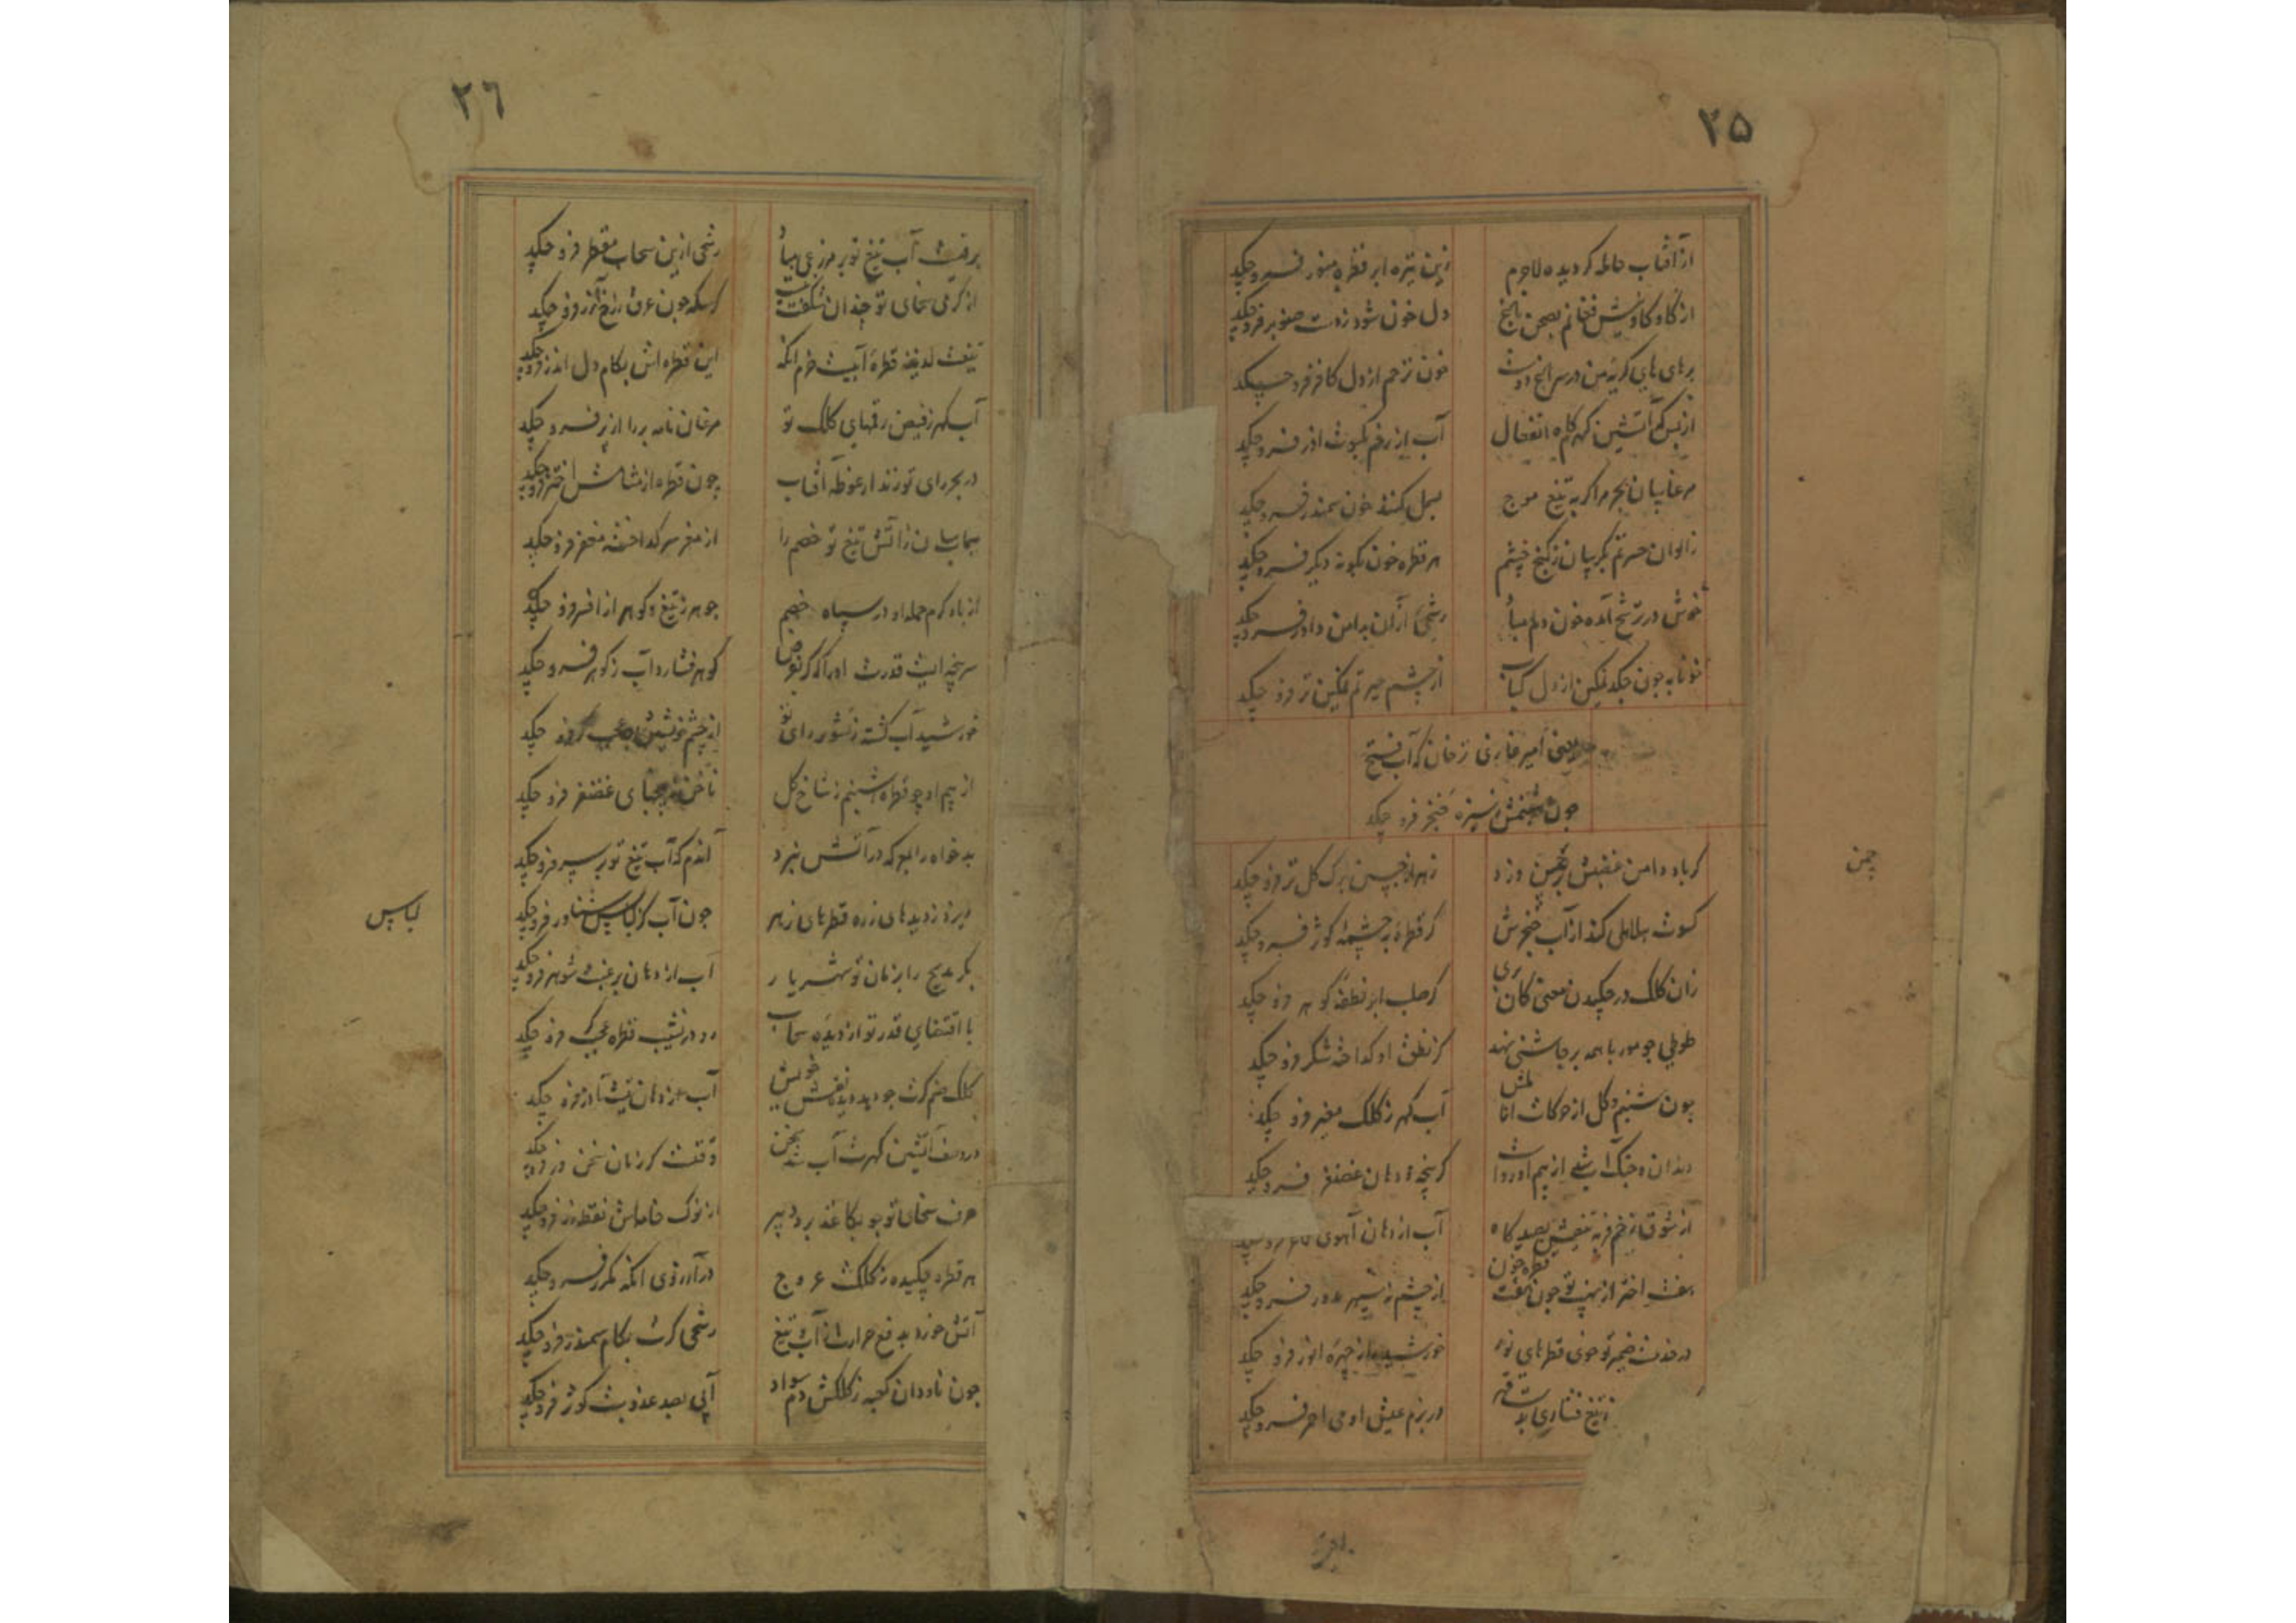 ۲۵
از آفتاب حامله کردیده لاجرم
زین تیره ابر قطرهٔ منور فرو چکید
از کاو کاو
دل خون شود ز دست صنوبر فرو چکید
بر های های کریه من در
خون ترحم از دل کافر فرو چکید
از بس کم آتشین کهرم انفعال
آب از رخم بکسوت اذر فرو چکید
مرغابیان بحر مرا کر به تیغ موج
بسمل کنند خون سمندر فرو چکید
زالوان حسرتم بکریبان ز کنج چشم
هر قطره خون بکونه دیکر فرو چکید
خوش در ترشح آمده خون دلم مباد
رشحی از آن بدامن داور فرو چکید
خونابه چون چکد نمکین از دل کباب
از چشم حیرتم نمکین تر فرو چکید
یعنی امیر غازی که آب فتح
چون شبنمش ز سبزهٔ خنجر فرو چکید
کر باد دامن غضبش بر چمن وزد
زهر از جبین برک کل تر فرو چکید
چمن
کسوت هلاهلی کند از آب خنجرش
کر قطرهٔ به چشمهٔ کوثر فرو چکید
زان کلک در چکیدن معنی کان بری
کز صلب ابر نطفهٔ کوهر فرو چکید
طوطی چو مور با همه بر چاشنی نهد
کز نطق او کداخته شکر فرو چکید
چون شبنم کل از حرکات اناملش
آب کهر ز کلک مغبر فرو چکید
دندان و چنک
کز پنجه و دهان غضنفر فرو چکید
از شوق زخم قربه تیغش بصیدکاه
آب از دهان آهوی
هفت اختر از نهیب تو چون هفت قطره خون
از چشم نه سپهر مدور فرو چکید
در خدمت ضمیر تو خوی قطرهای نور
خورشید را ز چهرهٔ انور فرو چکید
ز تیغ فشاری
در بزم عیش او می احمر فرو چکید
۲۶
برقست آب تیغ تو بر مزرعی مباد
رشحی ازین سحاب مقطر فرو چکید
از کرمی سخای تو چندان شکفت نیست
کر سکه چون عرق ز رخ زر فرو چکید
تیغت لدیغه قطرهٔ آبیست خرم آنکه
این قطره اش بکام دل اندر فرو چکید
آب کهر ز فیض رقمهای کلک تو
مرغان نامه بر را از پر فرو چکید
در بحر رای تو زند ار غوطه آفتاب
چون قطره از مشامش اختر فرو چکید
سیماب سان ز آتش تیغ تو خصم را
از مغفر سر کداخته مغفر فرو چکید
از باد کرم حمله او در سپاه خصم
جوهر ز تیغ و کوهر از افسر فرو چکید
سر پنجه ایست قدرت او را که کر بفرض
کوهر فشارد آب ز کوهر فرو چکید
خورشید آب کشته ز تشویر رای تو
از چشم خویشتن
از بیم او چو قطره شبنم ز شاخ کل
ناخن ز پنجهای غضنفر فرو چکید
بدخواه را بلبو که در آتش نبرد
آندم که آب تیغ تو بر سر فرو چکید
ریزد ز دیدهای زره قطرهای زهر
چون آب کز لباس شناور فرو چکید
لباس
بکر مدیح را بزمان تو شهریار
آب از دهان برغبت شوهر فرو چکید
با اقتضای قدر تو از دیده سحاب
رو در نشیب قطره فرو چکید
کلک صنم کرت چو بدیده نقش خویش
آب از دهان تیشه آذر فرو چکید
در وصف آتشین کهرت آب شد سخن
وقتست کز زبان سخن ور فرو چکید
حرف سخای تو چو بکاغذ برد دبیر
از نوک خامه اش نقط زر فرو چکید
هر قطره چکیده ز کلکت عروج
در آرزوی آنکه مکرر فرو چکید
آتش خورد بدفع حرارت ز آب تیغ
رشحی کرت بکام سمندر فرو چکید
چون ناودان کعبه ز کلکش دم سواد
آبی بصد عذوبت کوثر فرو چکید